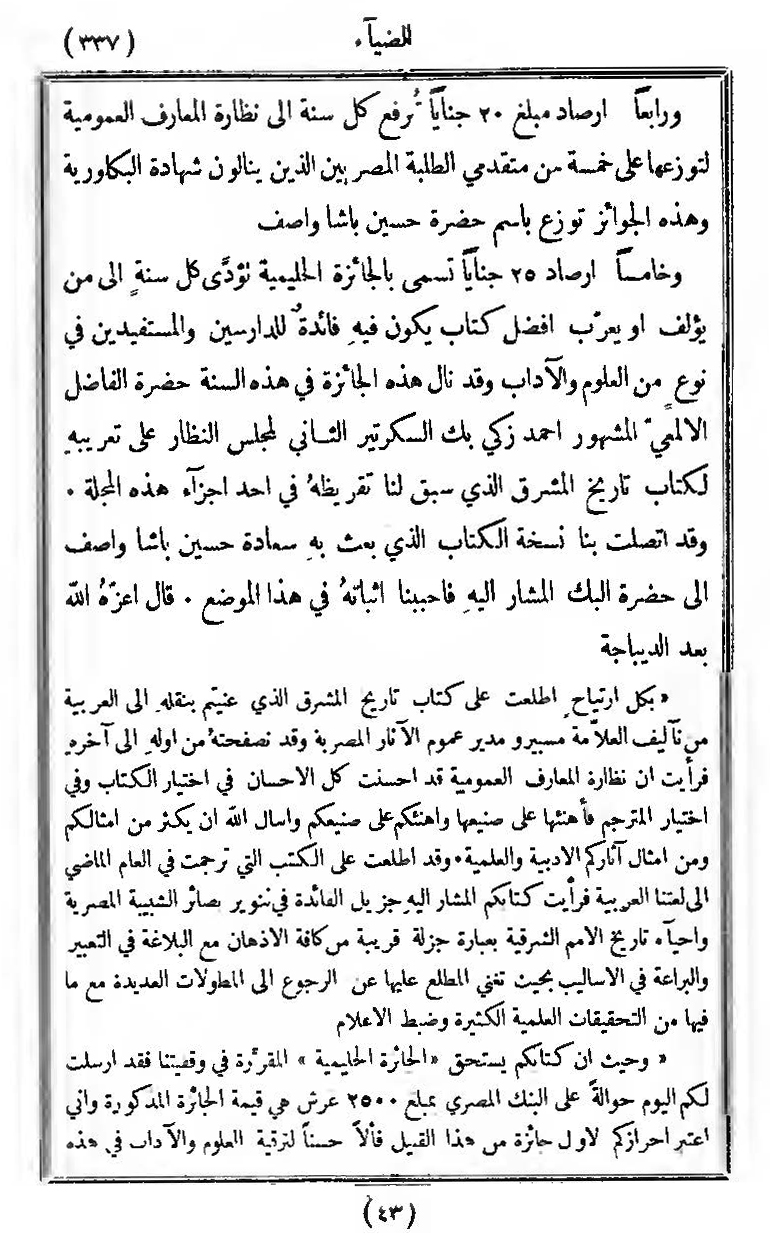 (٣٣٧) الضيآء
ورابعاً ارصاد مبلغ ٢٠ جنايًا تُرفع كل سنة الى نظارة المعارف العمومية
لتوزعها على خمسة من متقدمي الطلبة المصريين الذين ينالون شهادة البكاورية
وهذه الجوائز توزع باسم حضرة حسين باشا واصف
وخامساً ارصاد ٢٥ جنايًا تسمى بالجائزة الحليمية تؤدَّى كل سنةٍ الى من
يؤلف او يعرّب افضل كتاب يكون فيهِ فائدةٌ للدارسين والمستفيدين في
نوعٍ من العلوم والآداب وقد نال هذه الجائزة في هذه السنة حضرة الفاضل
الالمعيّ المشهور احمد زكي بك السكرتير الثاني لمجلس النظار على تعريبهِ
لكتاب تاريخ المشرق الذي سبق لنا تقريظهُ في احد اجزآء هذه المجلة ٠
وقد اتصلت بنا نسخة الكتاب الذي بعث بهِ سعادة حسين باشا واصف
الى حضرة البك المشار اليهِ فاحببنا اثباتهُ في هذا الموضع ٠ قال اعزّهُ الله
بعد الديباجة
« بكل ارتياحٍ اطلعت على كتاب تاريخ المشرق الذي عنيتم بنقلهِ الى العربية
من تآليف العلاّمة مسيرو مدير عموم الآثار المصرية وقد تصفحتهُ من اولهِ الى آخرهِ
فرأيت ان نظارة المعارف العمومية قد احسنت كل الاحسان في اختيار الكتاب وفي
اختيار المترجم فأهنئها على صنيعها واهنئكم على صنيعكم واسال الله ان يكثر من امثالكم
ومن امثال آثاركم الادبية والعلمية ٠ وقد اطلعت على الكتب التي ترجمت في العام الماضي
الى لغتنا العربية فرأيت كتابكم المشار اليهِ جزيل الفائدة في تنوير بصائر الشبيبة المصرية
واحيآء تاريخ الامم الشرقية بعبارة جزلة قريبة من كافة الاذهان مع البلاغة في التعبير
والبراعة في الاساليب بحيث تغني المطلع عليها عن الرجوع الى المطولات العديدة مع ما
فيها من التحقيقات العلمية الكثيرة وضبط الاعلام
« وحيث ان كتابكم يستحق «الجائزة الحليمية» المقرَّرة في وقفيتنا فقد ارسلت
لكم اليوم حوالةً على البنك المصري بمبلغ ٢٥٠٠ غرش هي قيمة الجائزة المذكورة واني
اعتبر احرازكم لاول جائزة من هذا القبيل فألاً حسناً لترقية العلوم والآداب في هذه
(٤٣)